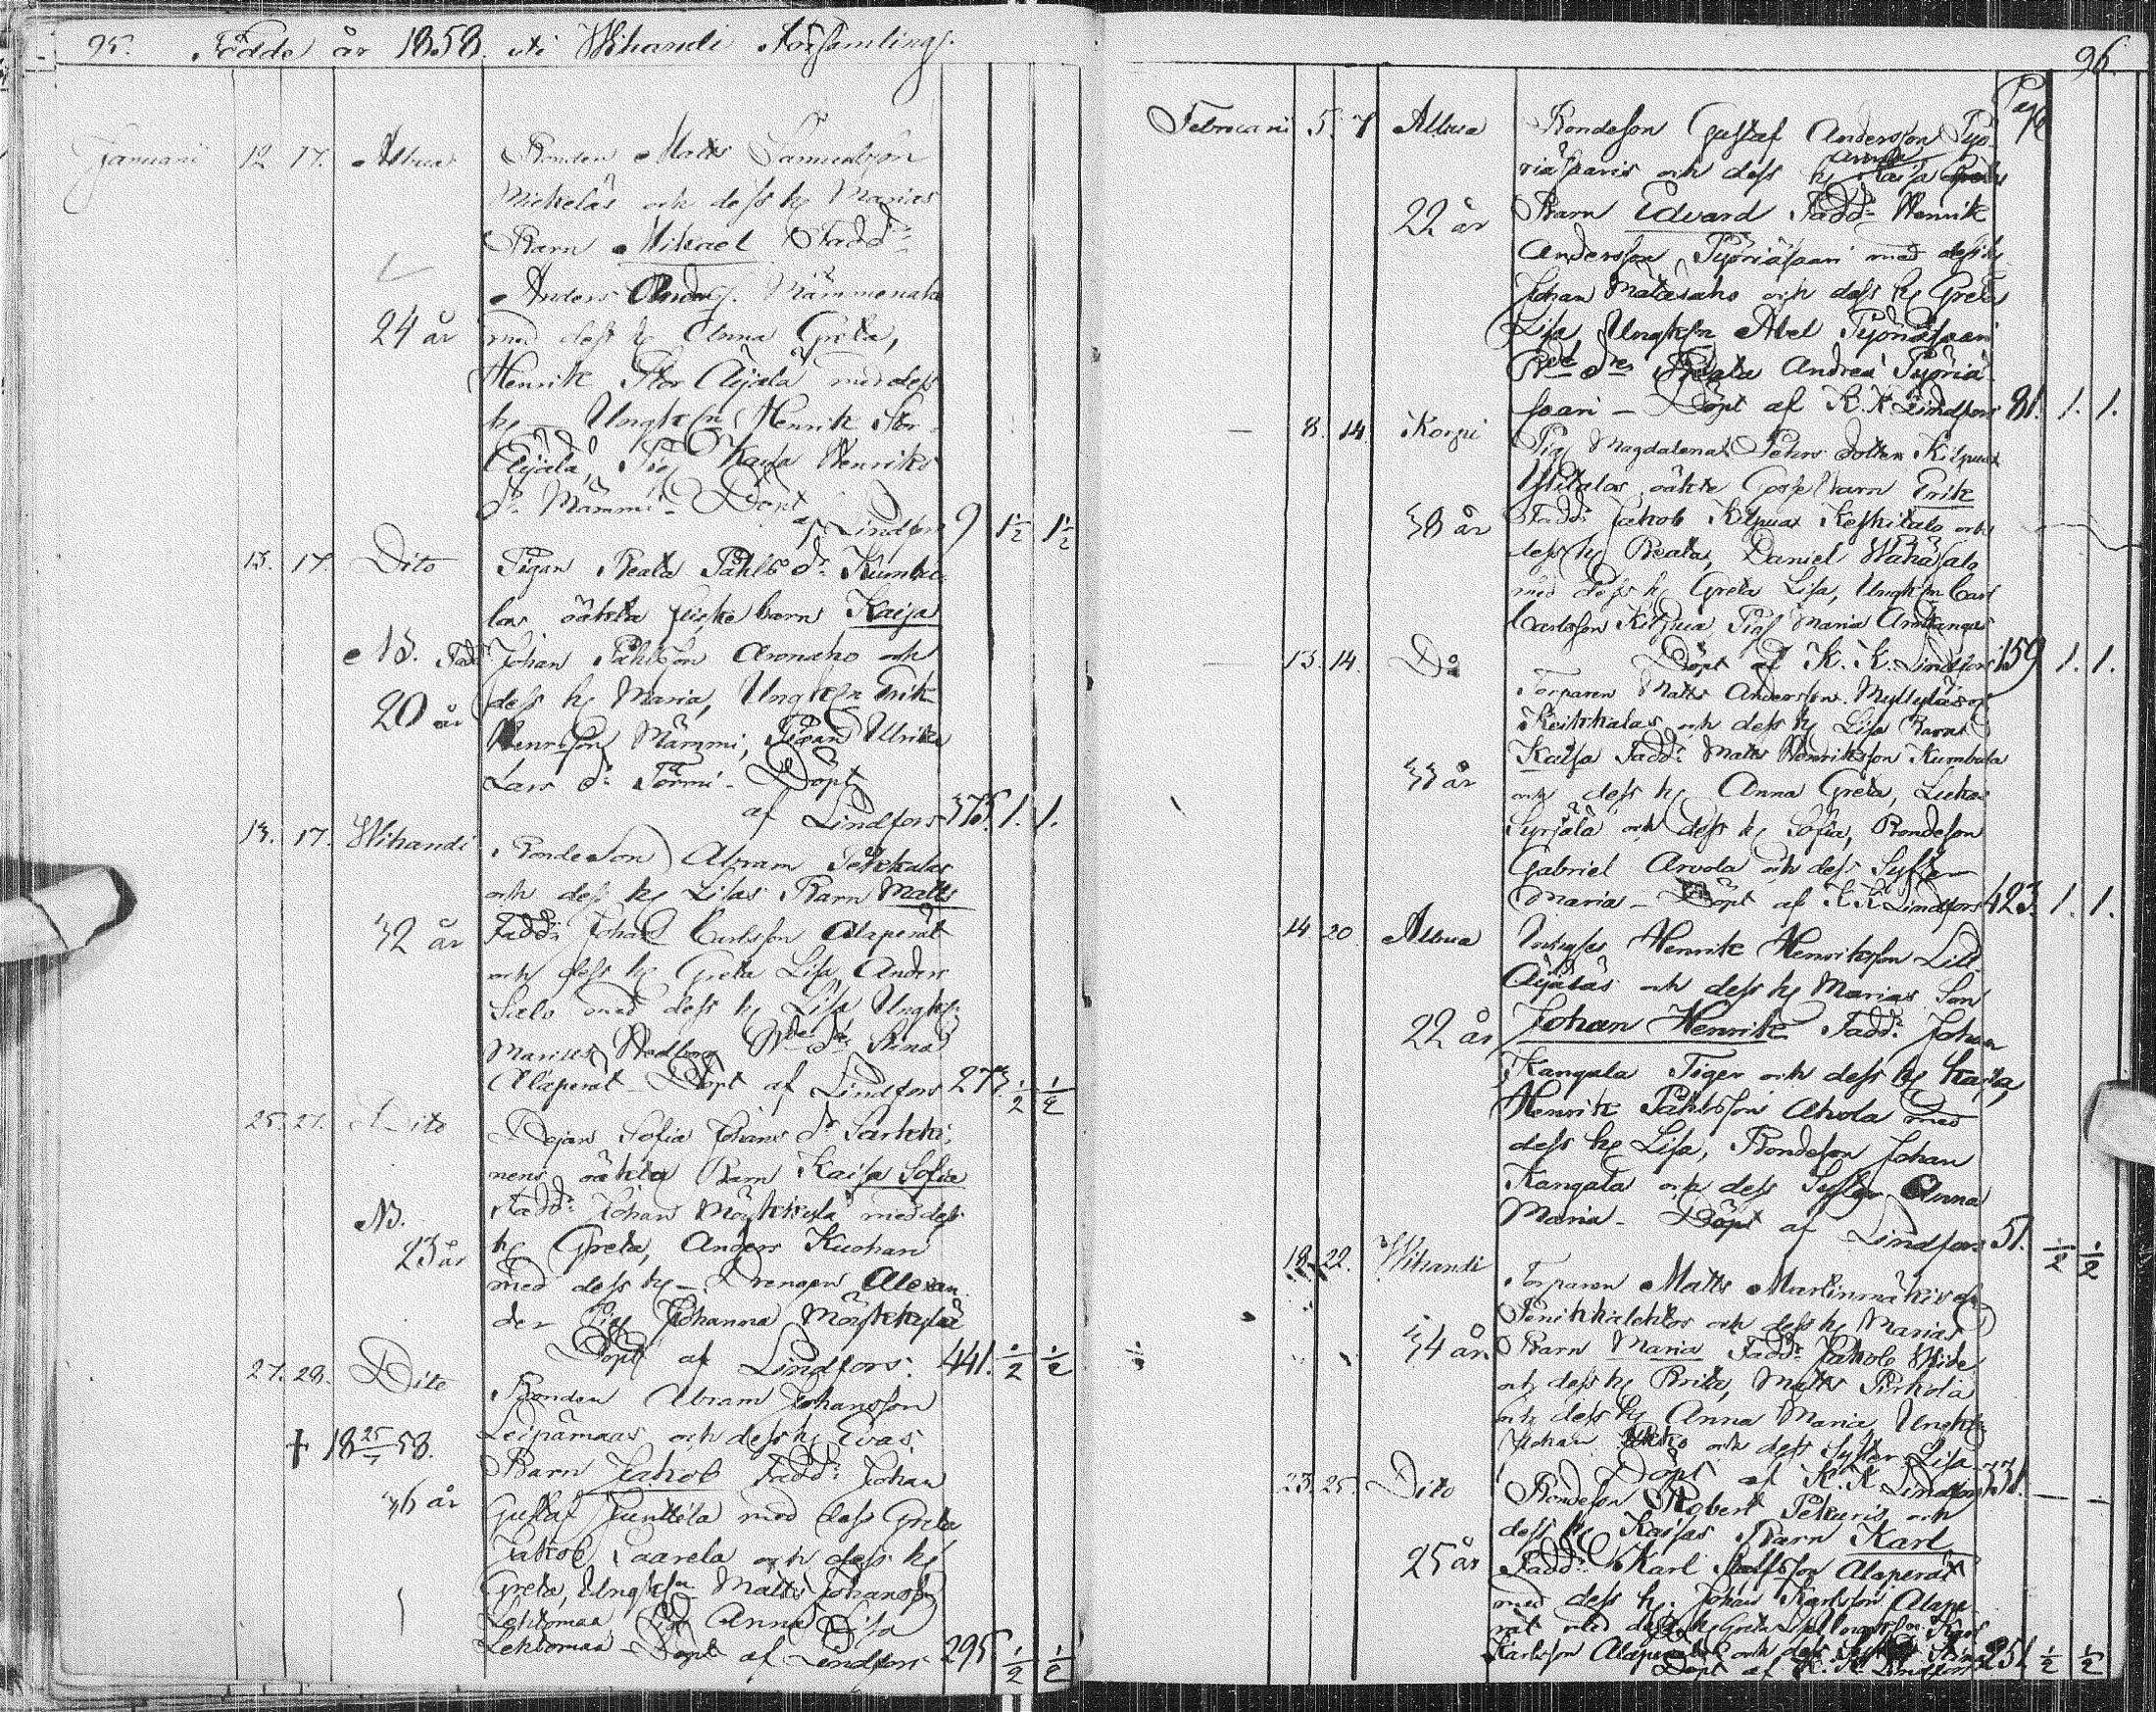 95. Födde år 1858. uti Wihandi Församling.
Januarii 12 17. Alwa Bonden Matts Samuelsson
Mickeläs och dess h Marias
Barn Mikael Fadd:
Anders Anders. Mämmenaho
24 år med dess h Anna Greta,
Henrik Stor Äijälä med dess
h – Ungk:n Henrik Stor
Äijälä, Pig Kaisa Henriks
d:r Mämmi – Döpt
af Lindfors 9 1½ 1½
13. 17. Dito Pigan Beata Påhls d:r Kumba-
las oäkta flicke barn Kaisa
NB. Fadd: Johan Påhlsson Aronaho och
20 år dess h Maria, Ungk:n Erik
Henrsson Mämmi, Pigan Ulrika
Lars d:r Törmi – Döpt
af Lindfors 375. 1. 1.
13. 17. Wihandi Bondeson Abram Pekkalas
och dess h Lisas Barn Matts
32 år Fadd: Johan Carlsson Alaperät
och dess h Greta Lisa, Anders
Salo med dess h Lisa Ungk:
Alaperät – Döpt af Lindfors 273. ½ ½
25. 27. Dito Dejan Sofia Johans d:r Sarkki-
nens oäkta Barn Kaisa Sofia
Fadd: Johan Möykkylä med dess
NB. 23 år h Greta, Anders Kuohan
med dess h – Drengen Alexan-
der Pig Johanna Möykkylä
Döpt af Lindfors. 441. ½ ½
27. 28. Dito Bonden Abram Johansson
† 18 25/7 58. Leipämaas och dess h Evas
Barn Jakob Fadd: Johan
36 år Gustaf Junttila med dess Greta
Jakob Saarela och dess h
Greta, Ungk:n Matts Johansson
Lehtomaa, Pig Anna Lisa
Lehtomaa – Döpt af Lindfors 295 ½ ½
96.
Pag
Februarii 5. 7 Alwa Bondeson Gustaf Andersson Pyö-
riäsaaris och dess h Kaisa
22 år Barn Edvard Fadd: Henrik
Andersson Pyöriäsaari med dess h
Johan Mälaskaho och dess h Greta
Lisa, Ungk:n Abel Pyöriäsaari
Andreä Pyöriä-
saari – Döpt af K. K. Lindfors 81. 1. 1.
8. 14. Korpi Pig Magdalena Petters dotter Kilpua
Ylitalos oäkte Gosse barn Erik
38 år Fadd: Jakob Kilpua Keskitalo och
dess h Beata, Daniel Wähäsalo
med dess h Greta Lisa, Ungk:n Carl
Carlsson Kilpua, Pig Maria
Döpt af K. K. Lindfors 159 1. 1.
13. 14. D:o Torparen Matts Andersson Myllyläs
Keikkalas och dess h Lisa Barn
Kaisa Fadd: Matts Henriksson Kumbula
33 år och dess h Anna Greta, Lukas
Syrjälä och dess h Sofia, Bondeson
Gabriel Arvola och dess Syster
Maria – Döpt af K. K. Lindfors 423. 1. 1.
14 20. Alwa Henrik Henriksson Lill
Äijäläs och dess h Marias Son
22 år Johan Henrik Fadd: Johan
Kangala Tiger och dess h Kaisa,
Henrik Påhlsson Ahola med
dess h Lisa, Bondeson Johan
Kangala och dess Syster Anna
Maria – Döpt af Lindfors 51. ½ ½
18. 22. Wihandi Torparen Matts Martinmäkis
Penikkalehtos och dess h Marias
34 år Barn Maria Fadd: Jakob
och dess h Brita, Matts Pirkola
och dess h Anna Maria, Ungk:
Johan och dess Syster Lisa
Döpt af K. K. Lindfors 331. – –
23. 25. Dito Bondeson Robert Pekuris och
dess h Kaisas Barn Karl
25 år Fadd: Karl Alaperät
med dess h. Johan Karlsson Alape-
rät med dess h Greta Karl
Karlsson Alaperät och dess Stina
Döpt af K. K. Lindfors 251 ½ ½